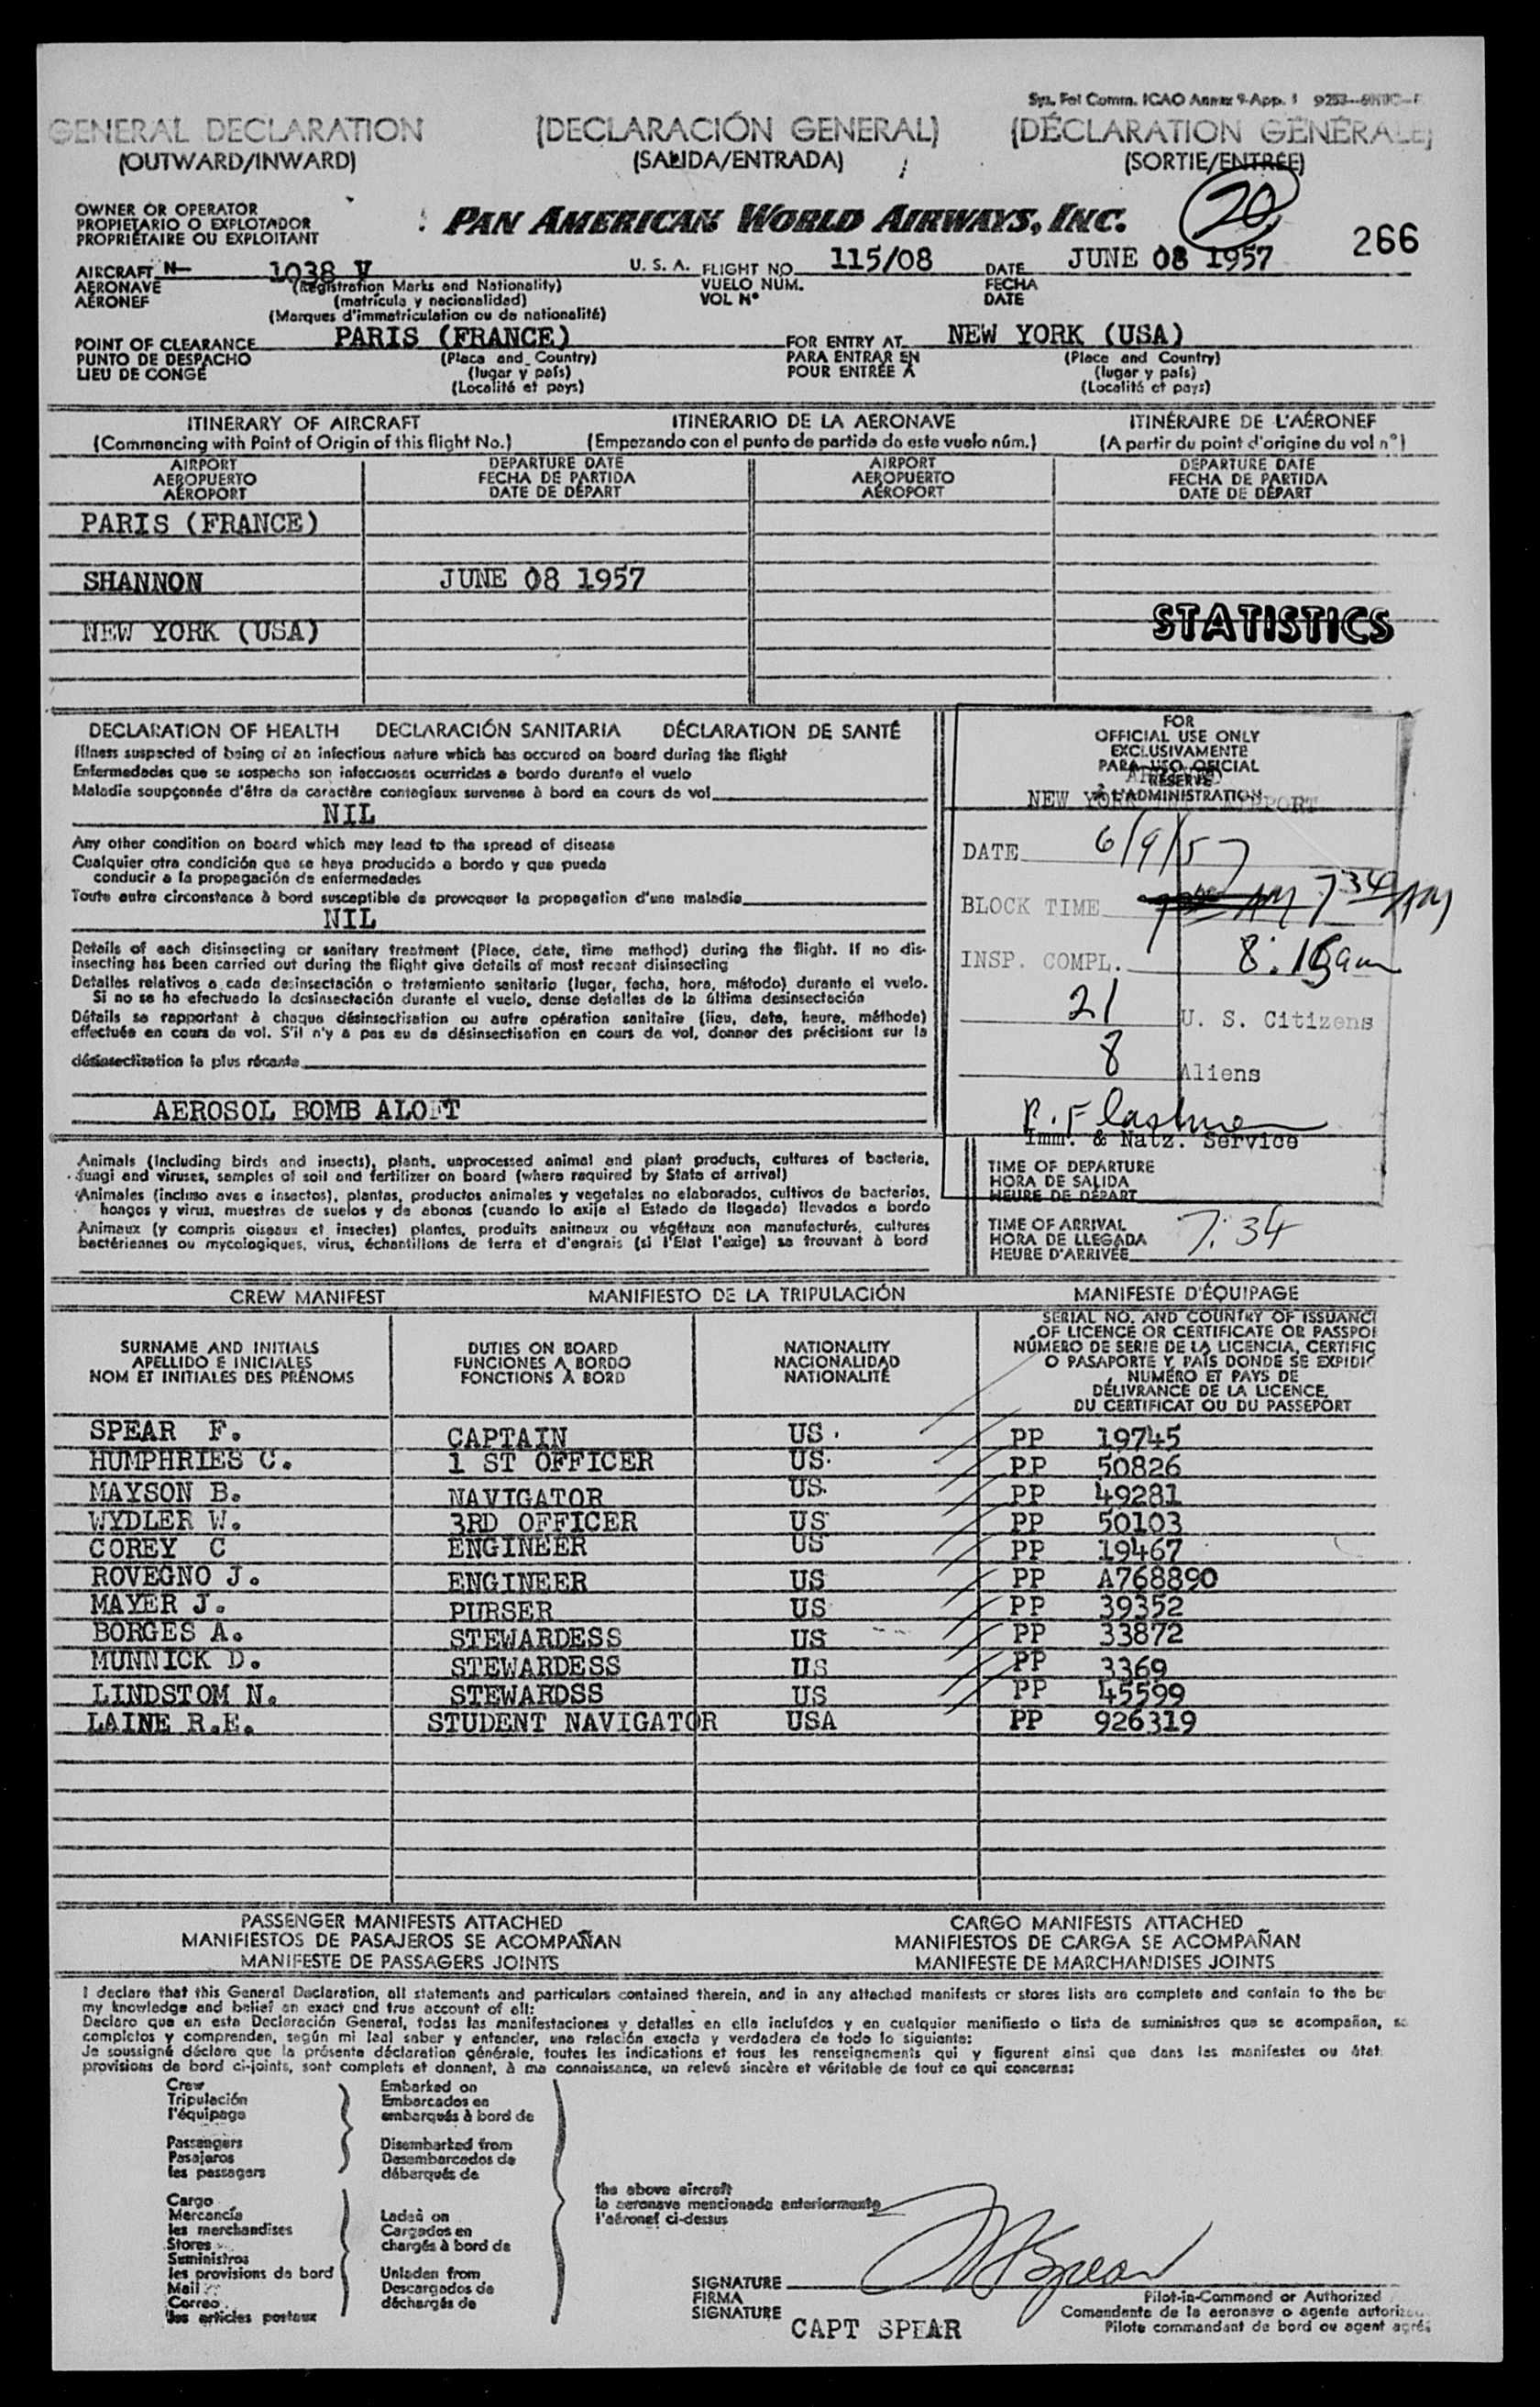 Sys. Fel Comm. ICAO Annex 9-App. 1
GENERAL DECLARATION (DECLARACIÓN GENERAL) (DÉCLARATION GÉNÉRALE)
(OUTWARD/INWARD) (SALIDA/ENTRADA) (SORTIE/ENTRÉE)
20
OWNER OR OPERATOR
PROPIETARIO O EXPLOTADOR
PROPRIÉTAIRE OU EXPLOITANT
PAN AMERICAN WORLD AIRWAYS, INC.
266
AIRCRAFT N- 1038 V U. S. A. FLIGHT NO. 115/08 DATE JUNE 08 1957
AERONAVE (Registration Marks and Nationality) VUELO NUM. FECHA
AÉRONEF (matrícula y nacionalidad) VOL Nº DATE
(Marques d'immatriculation ou de nationalité)
POINT OF CLEARANCE PARIS (FRANCE) FOR ENTRY AT NEW YORK (USA)
PUNTO DE DESPACHO (Place and Country) PARA ENTRAR EN (Place and Country)
LIEU DE CONGÉ (lugar y país) POUR ENTRÉE À (lugar y país)
(Localité et pays) (Localité et pays)
ITINERARY OF AIRCRAFT ITINERARIO DE LA AERONAVE ITINÉRAIRE DE L'AÉRONEF
(Commencing with Point of Origin of this flight No.) (Empezando con el punto de partida de este vuelo núm.) (A partir du point d'origine du vol nº)
AIRPORT DEPARTURE DATE AIRPORT DEPARTURE DATE
AEROPUERTO FECHA DE PARTIDA AEROPUERTO FECHA DE PARTIDA
AÉROPORT DATE DE DÉPART AÉROPORT DATE DE DÉPART
PARIS (FRANCE)
SHANNON JUNE 08 1957
STATISTICS
NEW YORK (USA)
DECLARATION OF HEALTH DECLARACIÓN SANITARIA DÉCLARATION DE SANTÉ
Illness suspected of being of an infectious nature which has occured on board during the flight
Enfermedades que se sospecha son infecciosas ocurridas a bordo durante el vuelo
Maladie soupçonnée d'être de caractère contagieux survenue à bord en cours de vol
NIL
Any other condition on board which may lead to the spread of disease
Cualquier otra condición que se haya producido a bordo y que pueda
conducir a la propagación de enfermedades
Toute autre circonstance à bord susceptible de provoquer la propagation d'une maladie
NIL
Details of each disinsecting or sanitary treatment (Place, date, time method) during the flight. If no dis-
insecting has been carried out during the flight give details of most recent disinsecting
Detalles relativos a cada desinsectación o tratamiento sanitario (lugar, fecha, hora, método) durante el vuelo.
Si no se ha efectuado la desinsectación durante el vuelo, dense detalles de la última desinsectación
Détails se rapportant à chaque désinsectisation ou autre opération sanitaire (lieu, date, heure, méthode)
effectuée en cours de vol. S'il n'y a pas eu de désinsectisation en cours de vol, donner des précisions sur la
désinsectisation la plus récente
AEROSOL BOMB ALOFT
FOR
OFFICIAL USE ONLY
EXCLUSIVAMENTE
PARA USO OFICIAL
RÉSERVÉ
À L'ADMINISTRATION
NEW YORK AIRPORT
DATE 6/9/57
BLOCK TIME 7 34 AM
INSP. COMPL. 8:15am
21 U. S. Citizens
8 Aliens
Imm. & Natz. Service
Animals (Including birds and insects), plants, unprocessed animal and plant products, cultures of bacteria,
fungi and viruses, samples of soil and fertilizer on board (where required by State of arrival)
Animales (incluso aves e insectos), plantas, productos animales y vegetales no elaborados, cultivos de bacterias,
hongos y virus, muestras de suelos y de abonos (cuando lo exija el Estado de llegada) llevados a bordo
Animaux (y compris oiseaux et insectes) plantes, produits animaux ou végétaux non manufacturés, cultures
bactériennes ou mycologiques, virus, échantillons de terre et d'engrais (si l'Etat l'exige) se trouvant à bord
TIME OF DEPARTURE
HORA DE SALIDA
HEURE DE DÉPART
TIME OF ARRIVAL
HORA DE LLEGADA
HEURE D'ARRIVÉE 7:34
CREW MANIFEST MANIFIESTO DE LA TRIPULACIÓN MANIFESTE D'ÉQUIPAGE
SURNAME AND INITIALS
APELLIDO E INICIALES
NOM ET INITIALES DES PRÉNOMS
DUTIES ON BOARD
FUNCIONES A BORDO
FONCTIONS À BORD
NATIONALITY
NACIONALIDAD
NATIONALITÉ
SERIAL NO. AND COUNTRY OF ISSUANC
OF LICENCE OR CERTIFICATE OR PASSPO
NÚMERO DE SERIE DE LA LICENCIA, CERTIFIC
O PASAPORTE Y PAÍS DONDE SE EXPIDIÓ
NUMÉRO ET PAYS DE
DÉLIVRANCE DE LA LICENCE,
DU CERTIFICAT OU DU PASSEPORT
SPEAR F. CAPTAIN US. PP 19745
HUMPHRIES C. 1 ST OFFICER US. PP 50826
MAYSON B. NAVIGATOR US. PP 49281
WYDLER W. 3RD OFFICER US PP 50103
COREY C ENGINEER US PP 19467
ROVEGNO J. ENGINEER US PP A768890
MAYER J. PURSER US PP 39352
BORGES A. STEWARDESS US PP 33872
MUNNICK D. STEWARDESS US PP 3369
LINDSTOM N. STEWARDSS US PP 45599
LAINE R.E. STUDENT NAVIGATOR USA PP 926319
PASSENGER MANIFESTS ATTACHED CARGO MANIFESTS ATTACHED
MANIFIESTOS DE PASAJEROS SE ACOMPAÑAN MANIFIESTOS DE CARGA SE ACOMPAÑAN
MANIFESTE DE PASSAGERS JOINTS MANIFESTE DE MARCHANDISES JOINTS
I declare that this General Declaration, all statements and particulars contained therein, and in any attached manifests or stores lists are complete and contain to the be
my knowledge and belief an exact and true account of all:
Declaro que en esta Declaración General, todas las manifestaciones y detalles en ella incluídos y en cualquier manifiesto o lista de suministros que se acompañan, s
completos y comprenden, según mi leal saber y entender, una relación exacta y verdadera de todo lo siguiente:
Je soussigné déclare que la présente déclaration générale, toutes les indications et tous les renseignements qui y figurent ainsi que dans les manifestes ou état
provisions de bord ci-joints, sont complets et donnent, à ma connaissance, un relevé sincère et véritable de tout ce qui concerne:
Crew Embarked on
Tripulación Embarcados en
l'équipage embarqués à bord de
Passengers Disembarked from
Pasajeros Desembarcados de
les passagers débarqués de
the above aircraft
la aeronave mencionada anteriormente
l'aéronef ci-dessus
Cargo
Mercancía Laded on
les marchandises Cargados en
Stores chargés à bord de
Suministros
les provisions de bord Unladen from
Mail Descargados de
Correo déchargés de
les articles postaux
SIGNATURE Spear
FIRMA Pilot-in-Command or Authorized
SIGNATURE Comandante de la aeronave o agente autoriz
CAPT SPEAR Pilote commandant de bord ou agent agréé